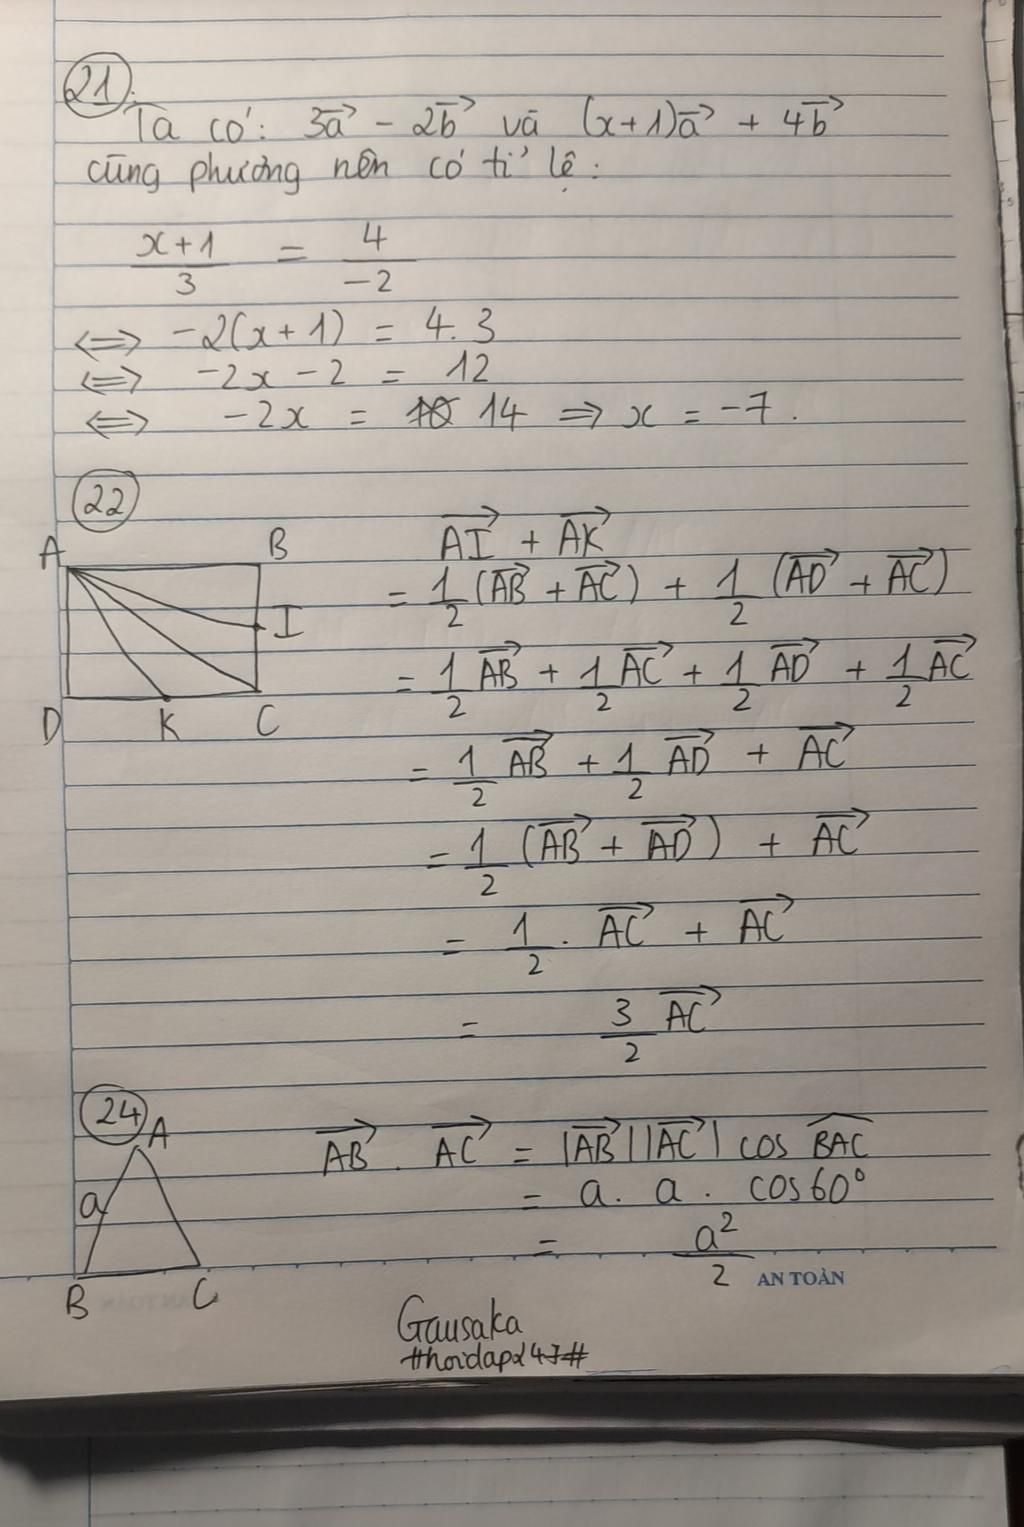 21.
Ta có: 3a⃗ - 2b⃗ và (x+1)a⃗ + 4b⃗
cùng phương nên có tỉ lệ:
(x+1)/3 = 4/(-2)
⇔ -2(x+1) = 4.3
⇔ -2x - 2 = 12
⇔ -2x = 14 ⇒ x = -7.
22
A B
I
D K C
AI⃗ + AK⃗
= 1/2 (AB⃗ + AC⃗) + 1/2 (AD⃗ + AC⃗)
= 1/2 AB⃗ + 1/2 AC⃗ + 1/2 AD⃗ + 1/2 AC⃗
= 1/2 AB⃗ + 1/2 AD⃗ + AC⃗
= 1/2 (AB⃗ + AD⃗) + AC⃗
= 1/2 . AC⃗ + AC⃗
= 3/2 AC⃗
24
A
a
B C
AB⃗ . AC⃗ = |AB⃗||AC⃗| cos BAC
= a. a. cos60°
= a²/2
AN TOÀN
Gausaka
#hoidap247#